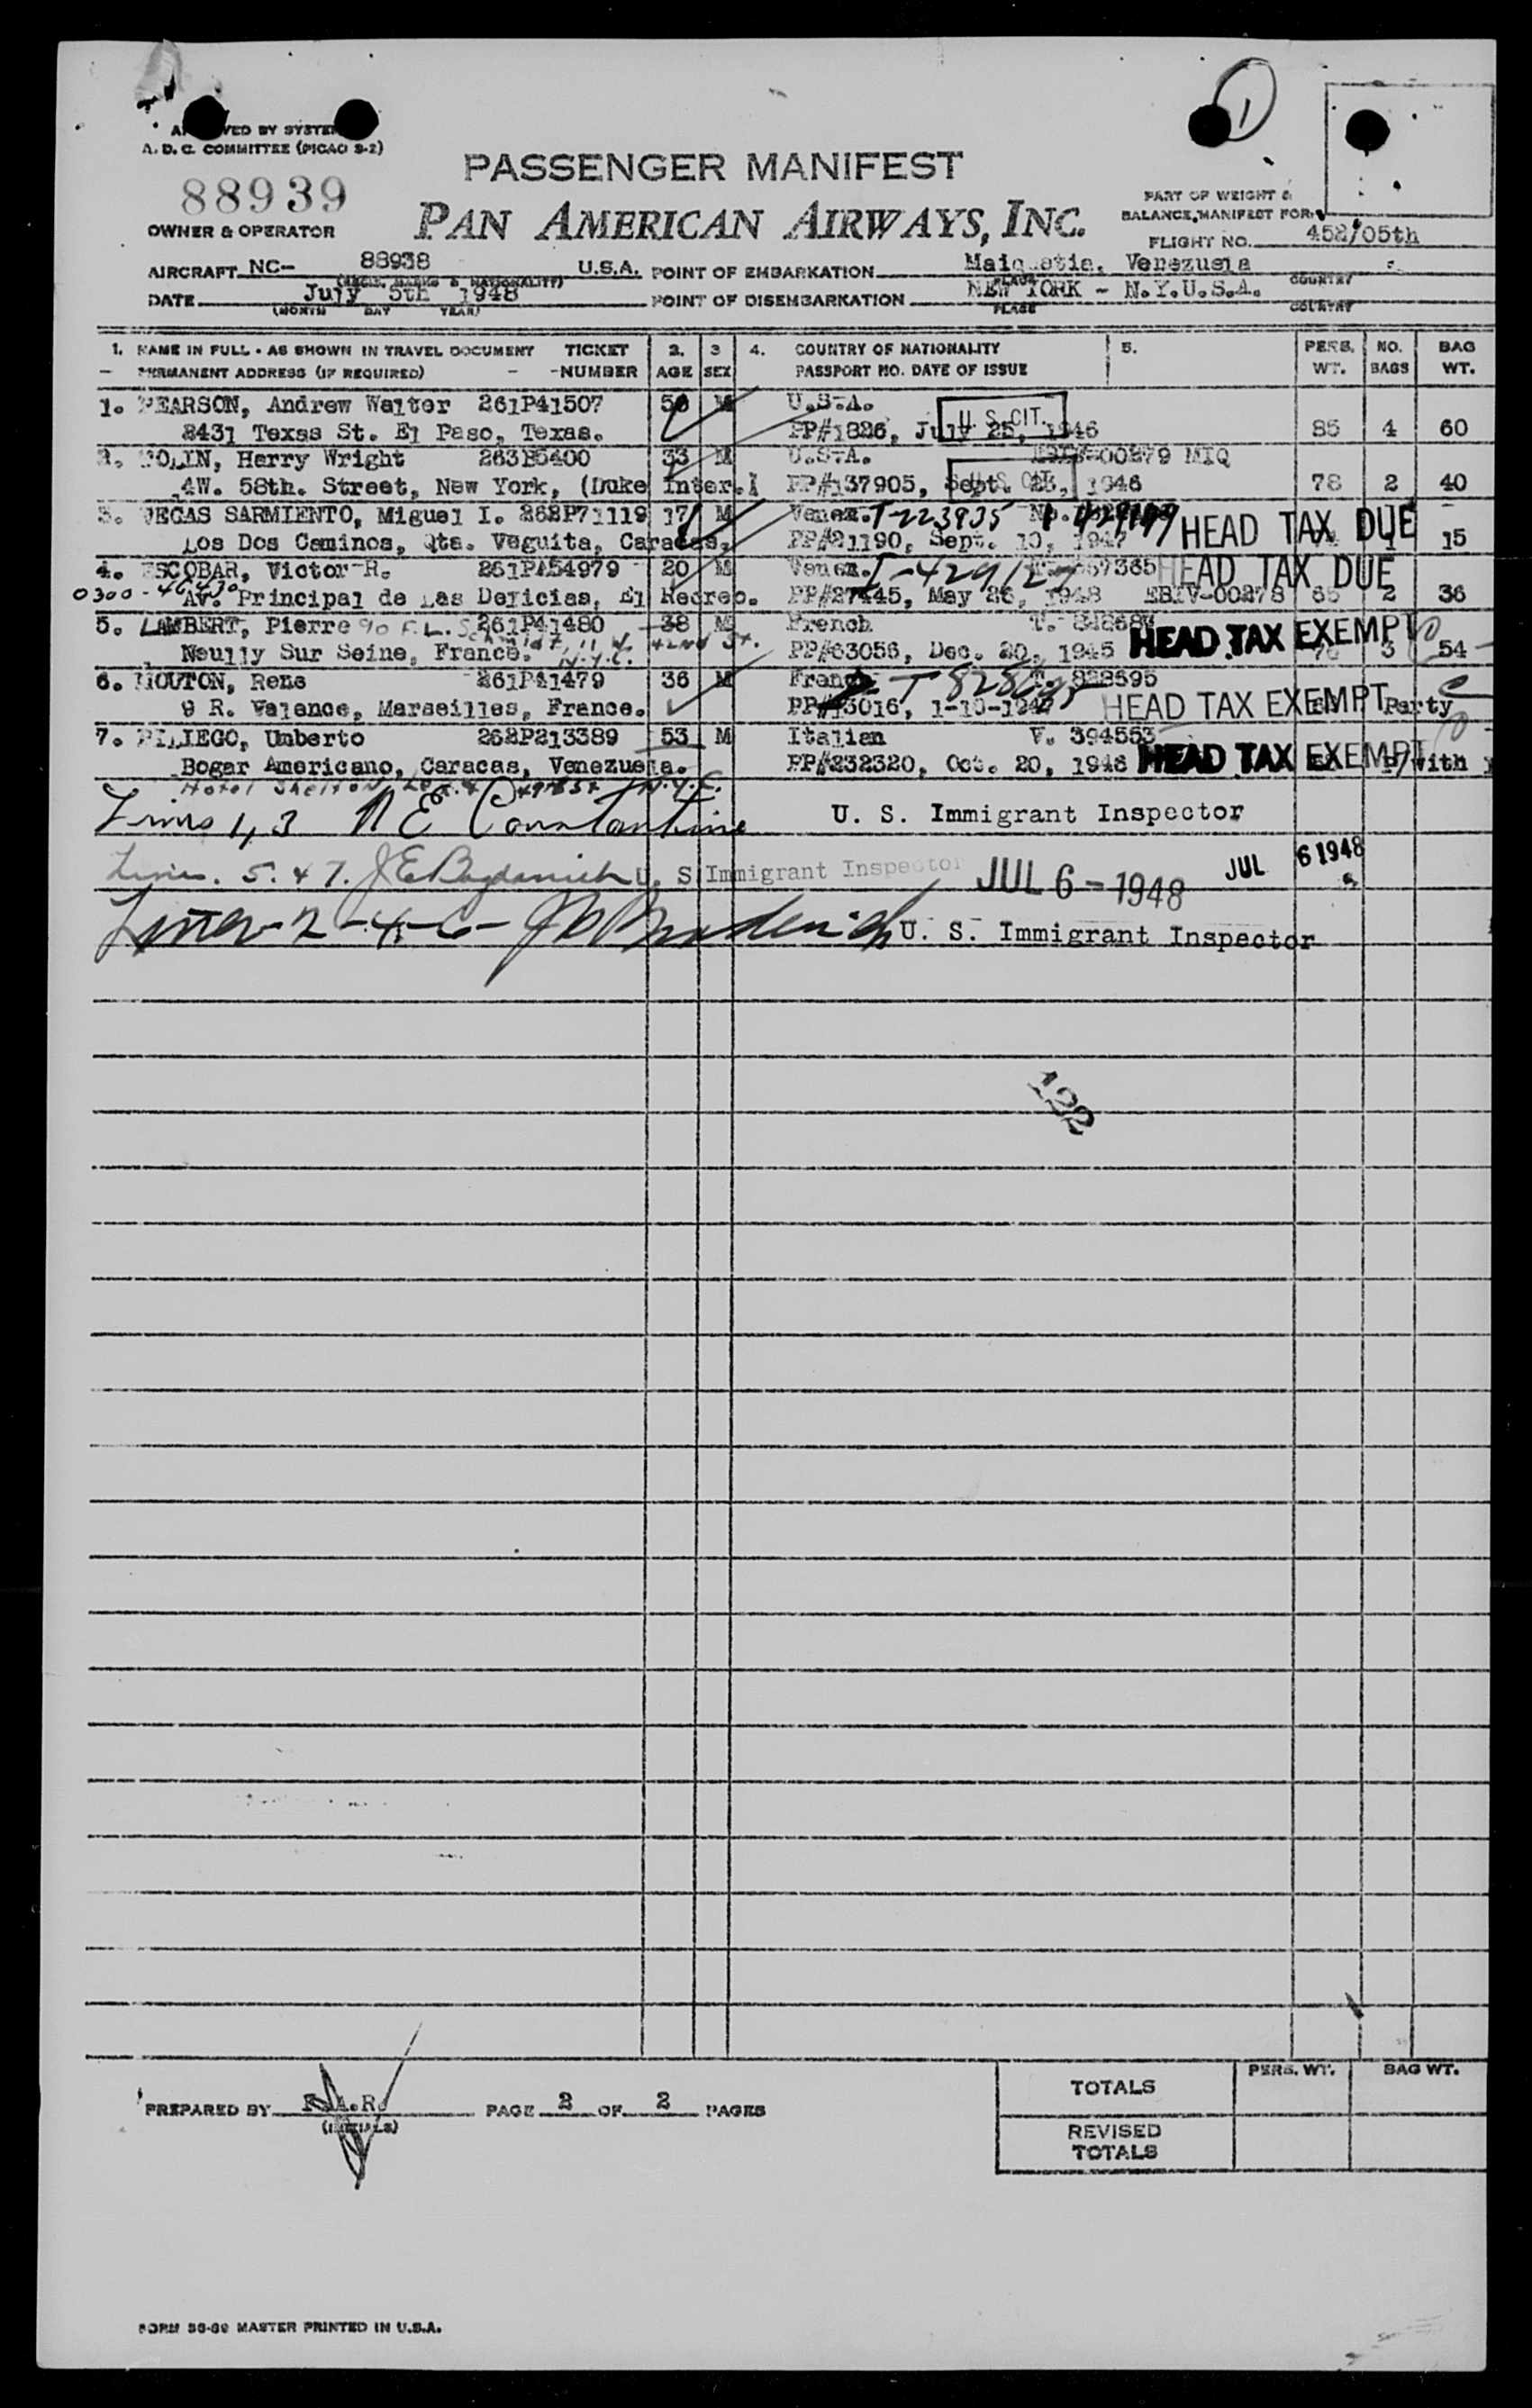 A. D. C. COMMITTEE (PICAO S-2)
88939
OWNER & OPERATOR
PASSENGER MANIFEST
PAN AMERICAN AIRWAYS, INC.
PART OF WEIGHT &
BALANCE MANIFEST FOR
FLIGHT NO. 452/05th
AIRCRAFT NC- 88938 U.S.A. POINT OF EMBARKATION Maiquetia, Venezuela
DATE July 5th 1948 POINT OF DISEMBARKATION NEW YORK - N.Y.U.S.A.
(MONTH DAY YEAR) PLACE COUNTRY
1. NAME IN FULL - AS SHOWN IN TRAVEL DOCUMENT TICKET 2. 3 4. COUNTRY OF NATIONALITY 5. PERS. NO. BAG
PERMANENT ADDRESS (IF REQUIRED) - NUMBER AGE SEX PASSPORT NO. DATE OF ISSUE WT. BAGS WT.
1. PEARSON, Andrew Walter 261P41507 M U.S.A.
2431 Texas St. El Paso, Texas. PP#1826, July 25, 1946 U.S. CIT. 85 4 60
2. Harry Wright 263B5400 33 M U.S.A. 00279 MIQ
4W. 58th. Street, New York, (Duke Inter.) PP#137905, Sept. 1946 78 2 40
3. VEGAS SARMIENTO, Miguel I. 262P71119 17 M Venez. T-223935 HEAD TAX DUE
Los Dos Caminos, Qta. Veguita, Caracas. PP#21190, Sept. 10, 1947 1 15
4. ESCOBAR, Victor R. 261PA54979 20 M Venez. HEAD TAX DUE
Av. Principal de Las Delicias, El Recreo. PP#27445, May 26, 1948 EBIV-00278 65 2 36
5. LAMBERT, Pierre 261P41480 38 M French HEAD TAX EXEMPT
Neully Sur Seine, France. 42nd St. PP#63056, Dec. 20, 1945 3 54
6. MOUTON, Rene 261P41479 36 M T. 828595
9 R. Valence, Marseilles, France. HEAD TAX EXEMPT Party
7. PILIEGO, Umberto 262P213389 53 M Italian V. 394553
Bogar Americano, Caracas, Venezuela. PP#232320, Oct. 20, 1946 HEAD TAX EXEMPT with
Hotel Shelton N.Y.C.
Lines 1, 3 N E Constantine U. S. Immigrant Inspector
Lines. 5. & 7. U. S Immigrant Inspector JUL 6 - 1948 JUL 6 1948
Lines - 2 - 4 - 6 - U. S. Immigrant Inspector
122
PREPARED BY PAGE 2 OF 2 PAGES
TOTALS PERS. WT. BAG WT.
REVISED
TOTALS
FORM 36-69 MASTER PRINTED IN U.S.A.